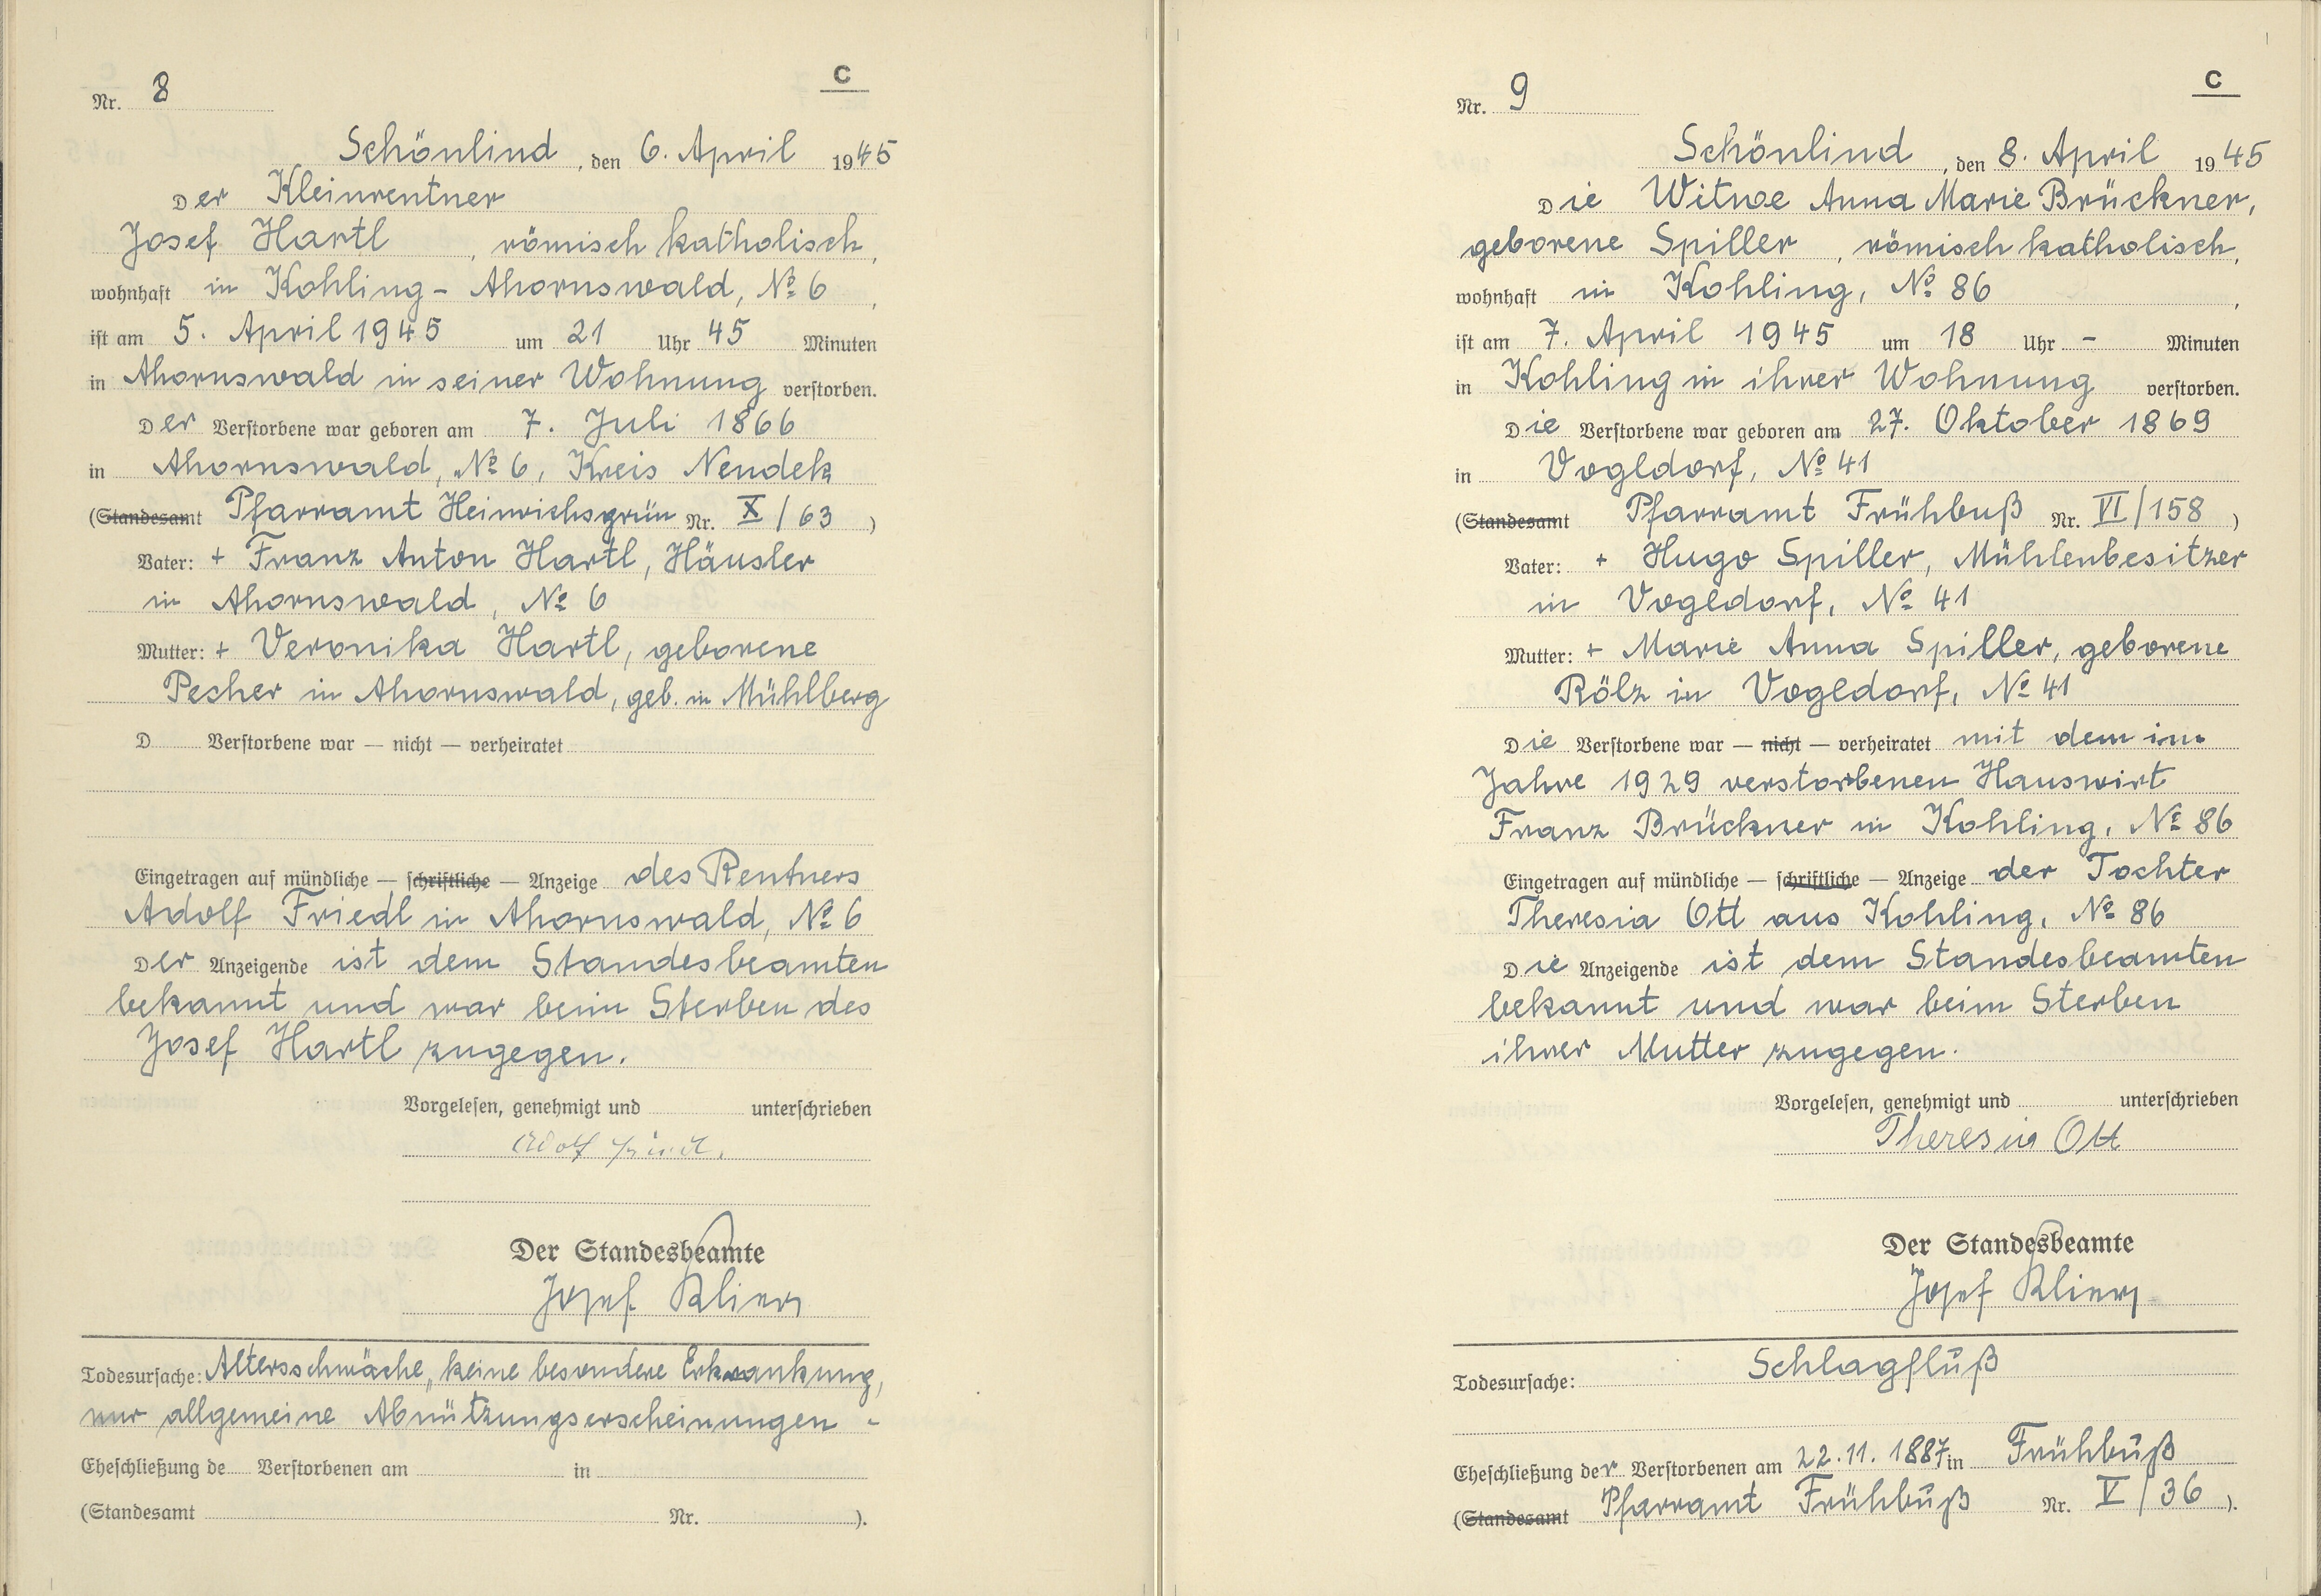 C
Nr. 8
Schönlind, den 6. April 1945
Der Kleinrentner
Josef Hartl, römisch katholisch,
wohnhaft in Kohling - Ahornswald, No 6,
ist am 5. April 1945 um 21 Uhr 45 Minuten
in Ahornswald in seiner Wohnung verstorben.
Der Verstorbene war geboren am 7. Juli 1866
in Ahornswald, No 6, Kreis Neudek
(Standesamt Pfarramt Heinrichsgrün Nr. X/63)
Vater: + Franz Anton Hartl, Häusler
in Ahornswald, No 6
Mutter: + Veronika Hartl, geborene
Pecher in Ahornswald, geb. in Mühlberg
D Verstorbene war — nicht — verheiratet
Eingetragen auf mündliche — schriftliche — Anzeige des Rentners
Adolf Friedl in Ahornswald, No 6
Der Anzeigende ist dem Standesbeamten
bekannt und war beim Sterben des
Josef Hartl zugegen.
Vorgelesen, genehmigt und unterschrieben
Adolf
Der Standesbeamte
Josef Klier
Todesursache: Altersschwäche, keine besondere Erkrankung,
nur allgemeine Abnützungserscheinungen -
Eheschließung de Verstorbenen am in
(Standesamt Nr. ).
C
Nr. 9
Schönlind, den 8. April 1945
Die Witwe Anna Marie Brückner,
geborene Spiller, römisch katholisch,
wohnhaft in Kohling, No 86,
ist am 7. April 1945 um 18 Uhr - Minuten
in Kohling in ihrer Wohnung verstorben.
Die Verstorbene war geboren am 27. Oktober 1869
in Vogldorf, No 41
(Standesamt Pfarramt Frühbuß Nr. VI/158)
Vater: + Hugo Spiller, Mühlenbesitzer
in Vogldorf, No 41
Mutter: + Marie Anna Spiller, geborene
Rölz in Vogldorf, No 41
Die Verstorbene war — nicht — verheiratet mit dem im
Jahre 1929 verstorbenen Hauswirt
Franz Brückner in Kohling, No 86
Eingetragen auf mündliche — schriftliche — Anzeige der Tochter
Theresia Ott aus Kohling, No 86
Die Anzeigende ist dem Standesbeamten
bekannt und war beim Sterben
ihrer Mutter zugegen.
Vorgelesen, genehmigt und unterschrieben
Theresia Ott
Der Standesbeamte
Josef Klier
Todesursache: Schlagfluß
Eheschließung der Verstorbenen am 22.11.1887 in Frühbuß
(Standesamt Pfarramt Frühbuß Nr. V/36).